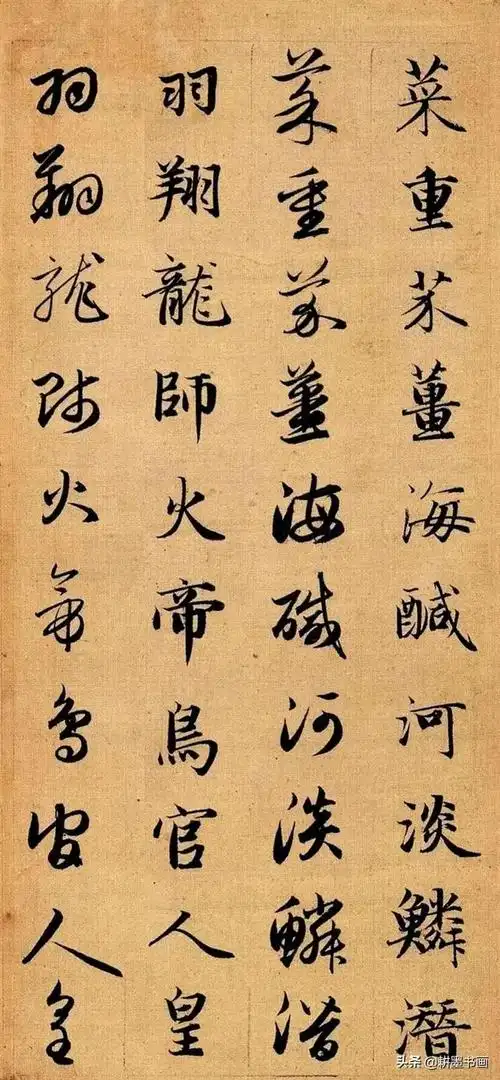 菜重芥薑海醎河淡鱗潛
菜重芥薑海醎河淡鱗潛
羽翔龍師火帝鳥官人皇
羽翔龍師火帝鳥官人皇
头条 @耕墨书画